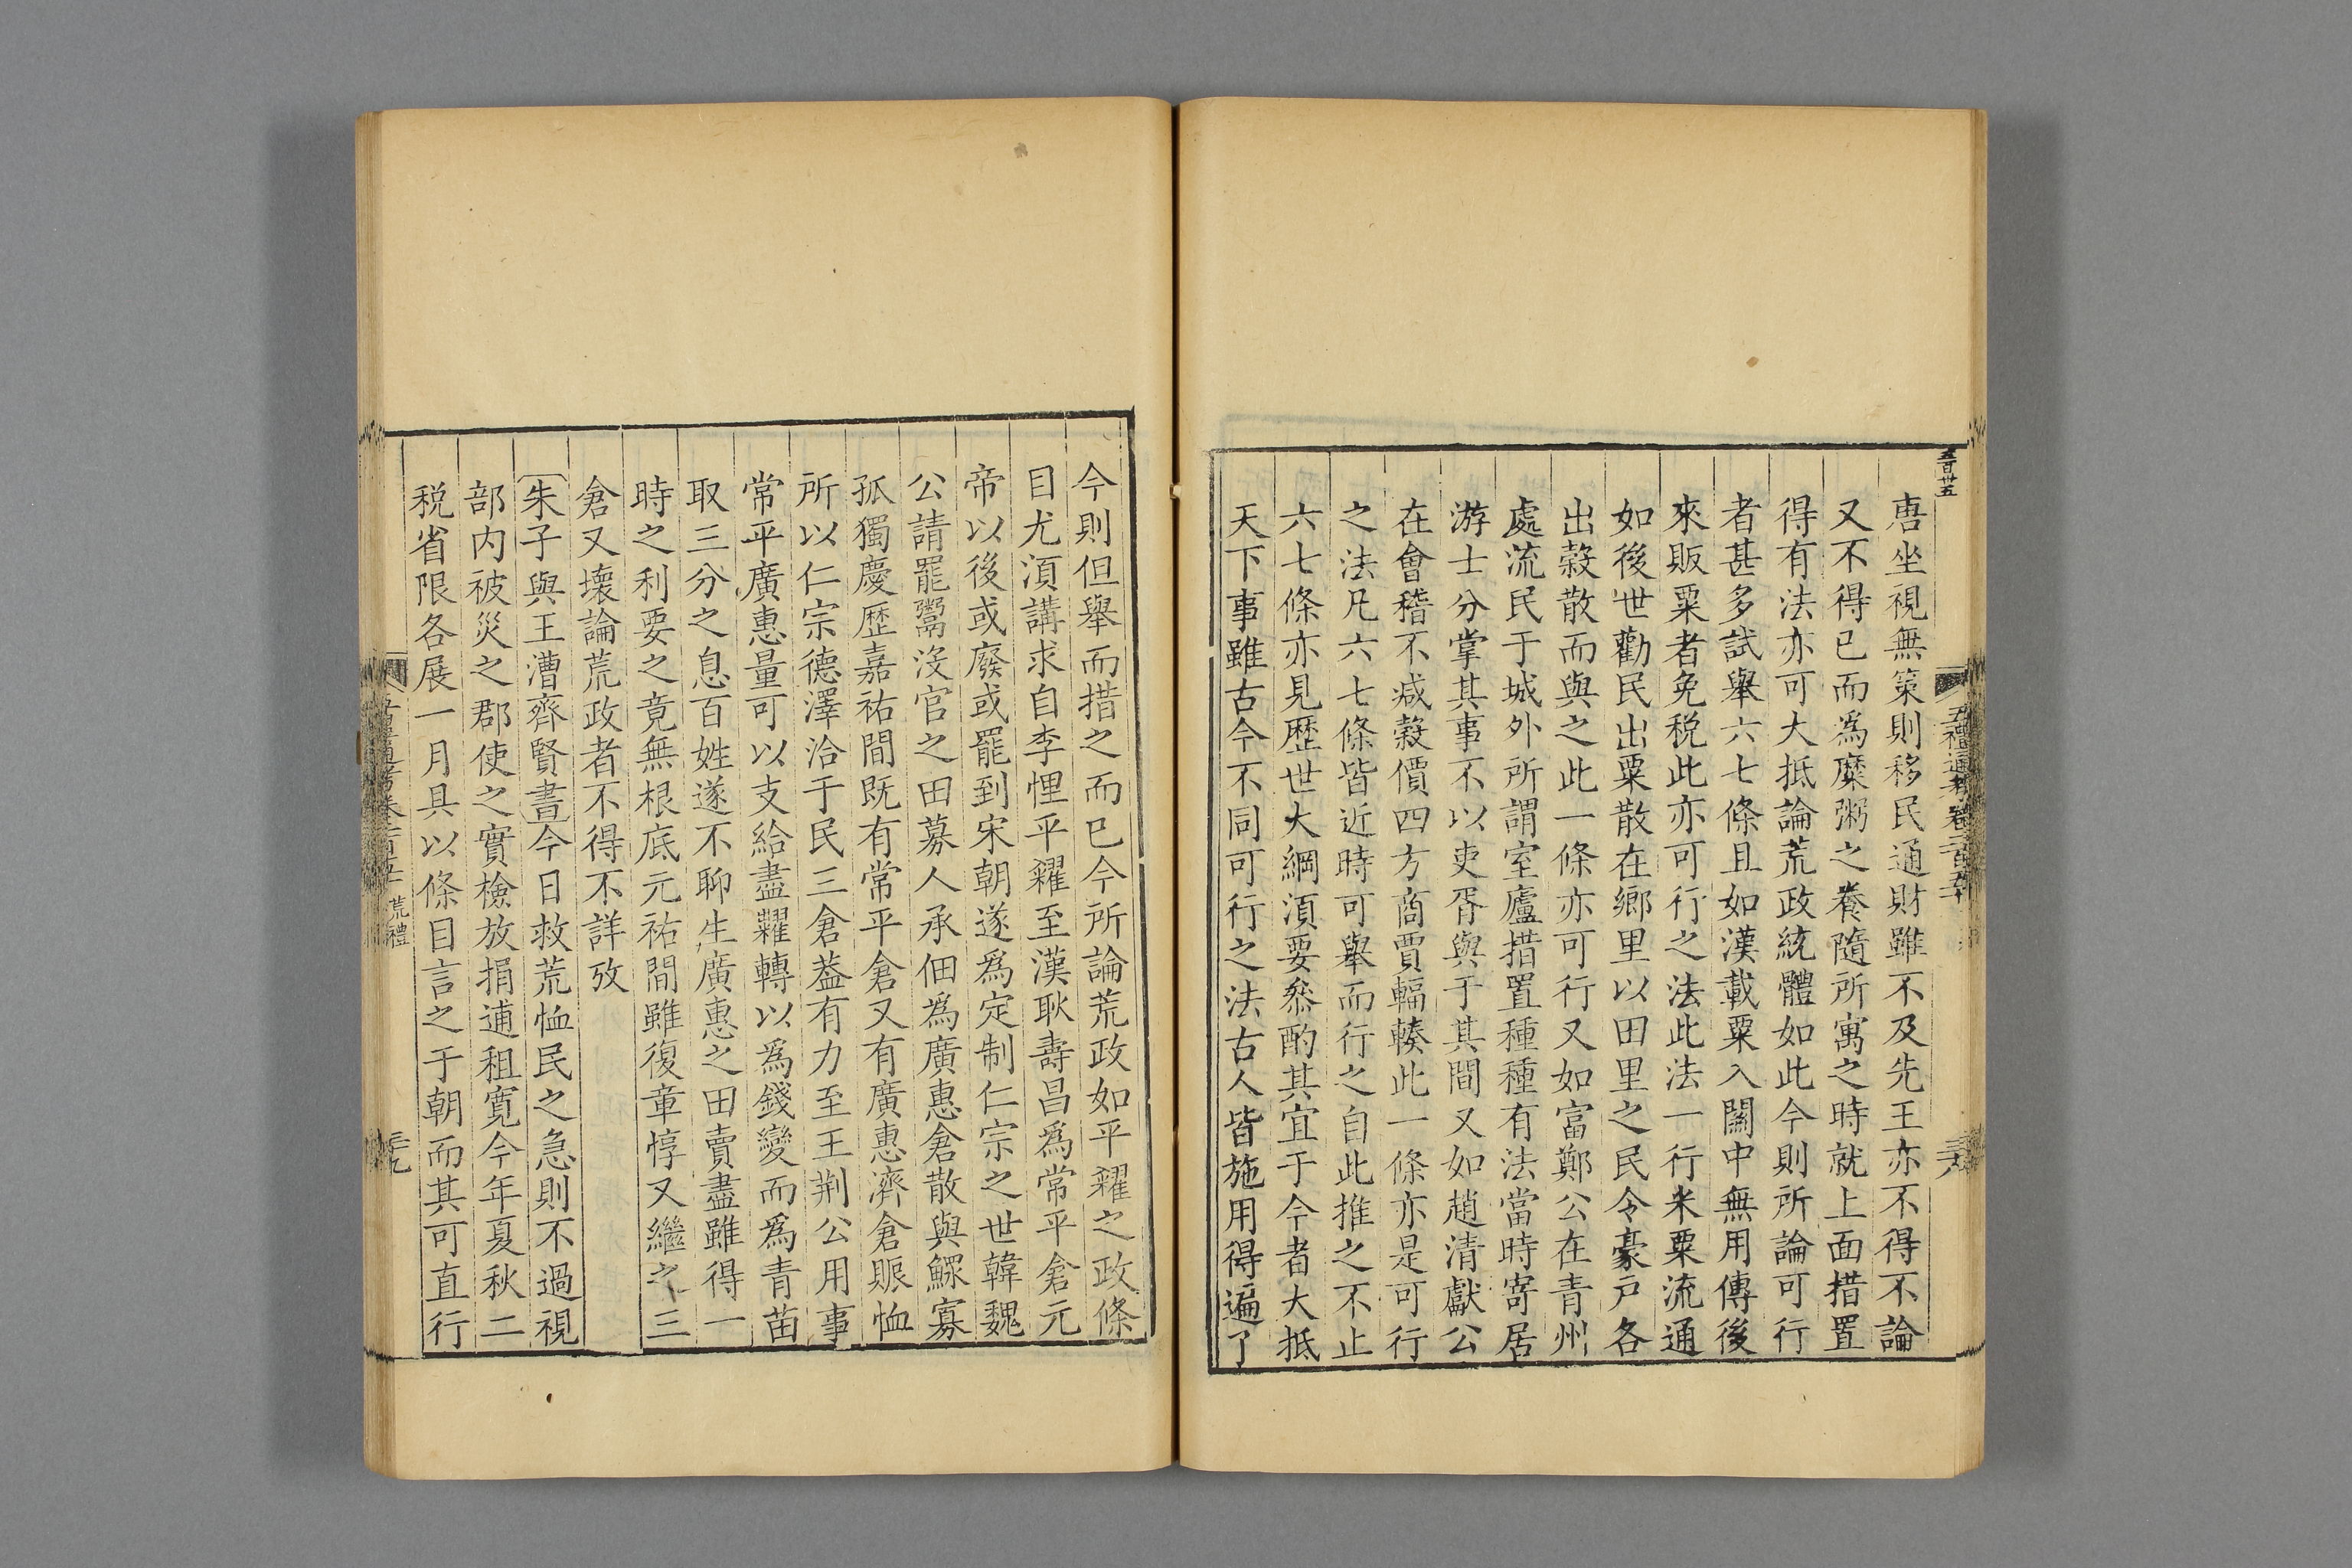 五百卅五
唐坐視無策則移民通財雖不及先王亦不得不論
又不得已而爲糜粥之養隨所寓之時就上面措置
得有法亦可大抵論荒政統體如此今則所論可行
者甚多試舉六七條且如漢載粟入關中無用傳後
來販粟者免税此亦可行之法此法一行米粟流通
如後世勸民出粟散在鄉里以田里之民令豪戸各
出穀散而與之此一條亦可行又如富鄭公在青州
處流民于城外所謂室廬措置種種有法當時寄居
游士分掌其事不以吏胥與于其間又如趙清獻公
在會稽不减穀價四方商賈輻輳此一條亦是可行
之法凡六七條皆近時可舉而行之自此推之不止
六七條亦見歴世大綱湏要叅酌其宜于今者大抵
天下事雖古今不同可行之法古人皆施用得遍了
今則但舉而措之而已今所論荒政如平糴之政條
目尤湏講求自李悝平糴至漢耿壽昌爲常平倉元
帝以後或廢或罷到宋朝遂爲定制仁宗之世韓魏
公請罷鬻沒官之田募人承佃爲廣惠倉散與鰥寡
孤獨慶歴嘉祐間既有常平倉又有廣惠濟倉賑恤
所以仁宗德澤洽于民三倉葢有力至王荆公用事
常平廣惠量可以支給盡糶轉以爲錢變而爲青苗
取三分之息百姓遂不聊生廣惠之田賣盡雖得一
時之利要之竟無根底元祐間雖復章惇又繼之三
倉又壞論荒政者不得不詳攷
朱子與王漕齊賢書今日救荒恤民之急則不過視
部内被災之郡使之實檢放捐逋租寛今年夏秋二
税省限各展一月具以條目言之于朝而其可直行
荒禮